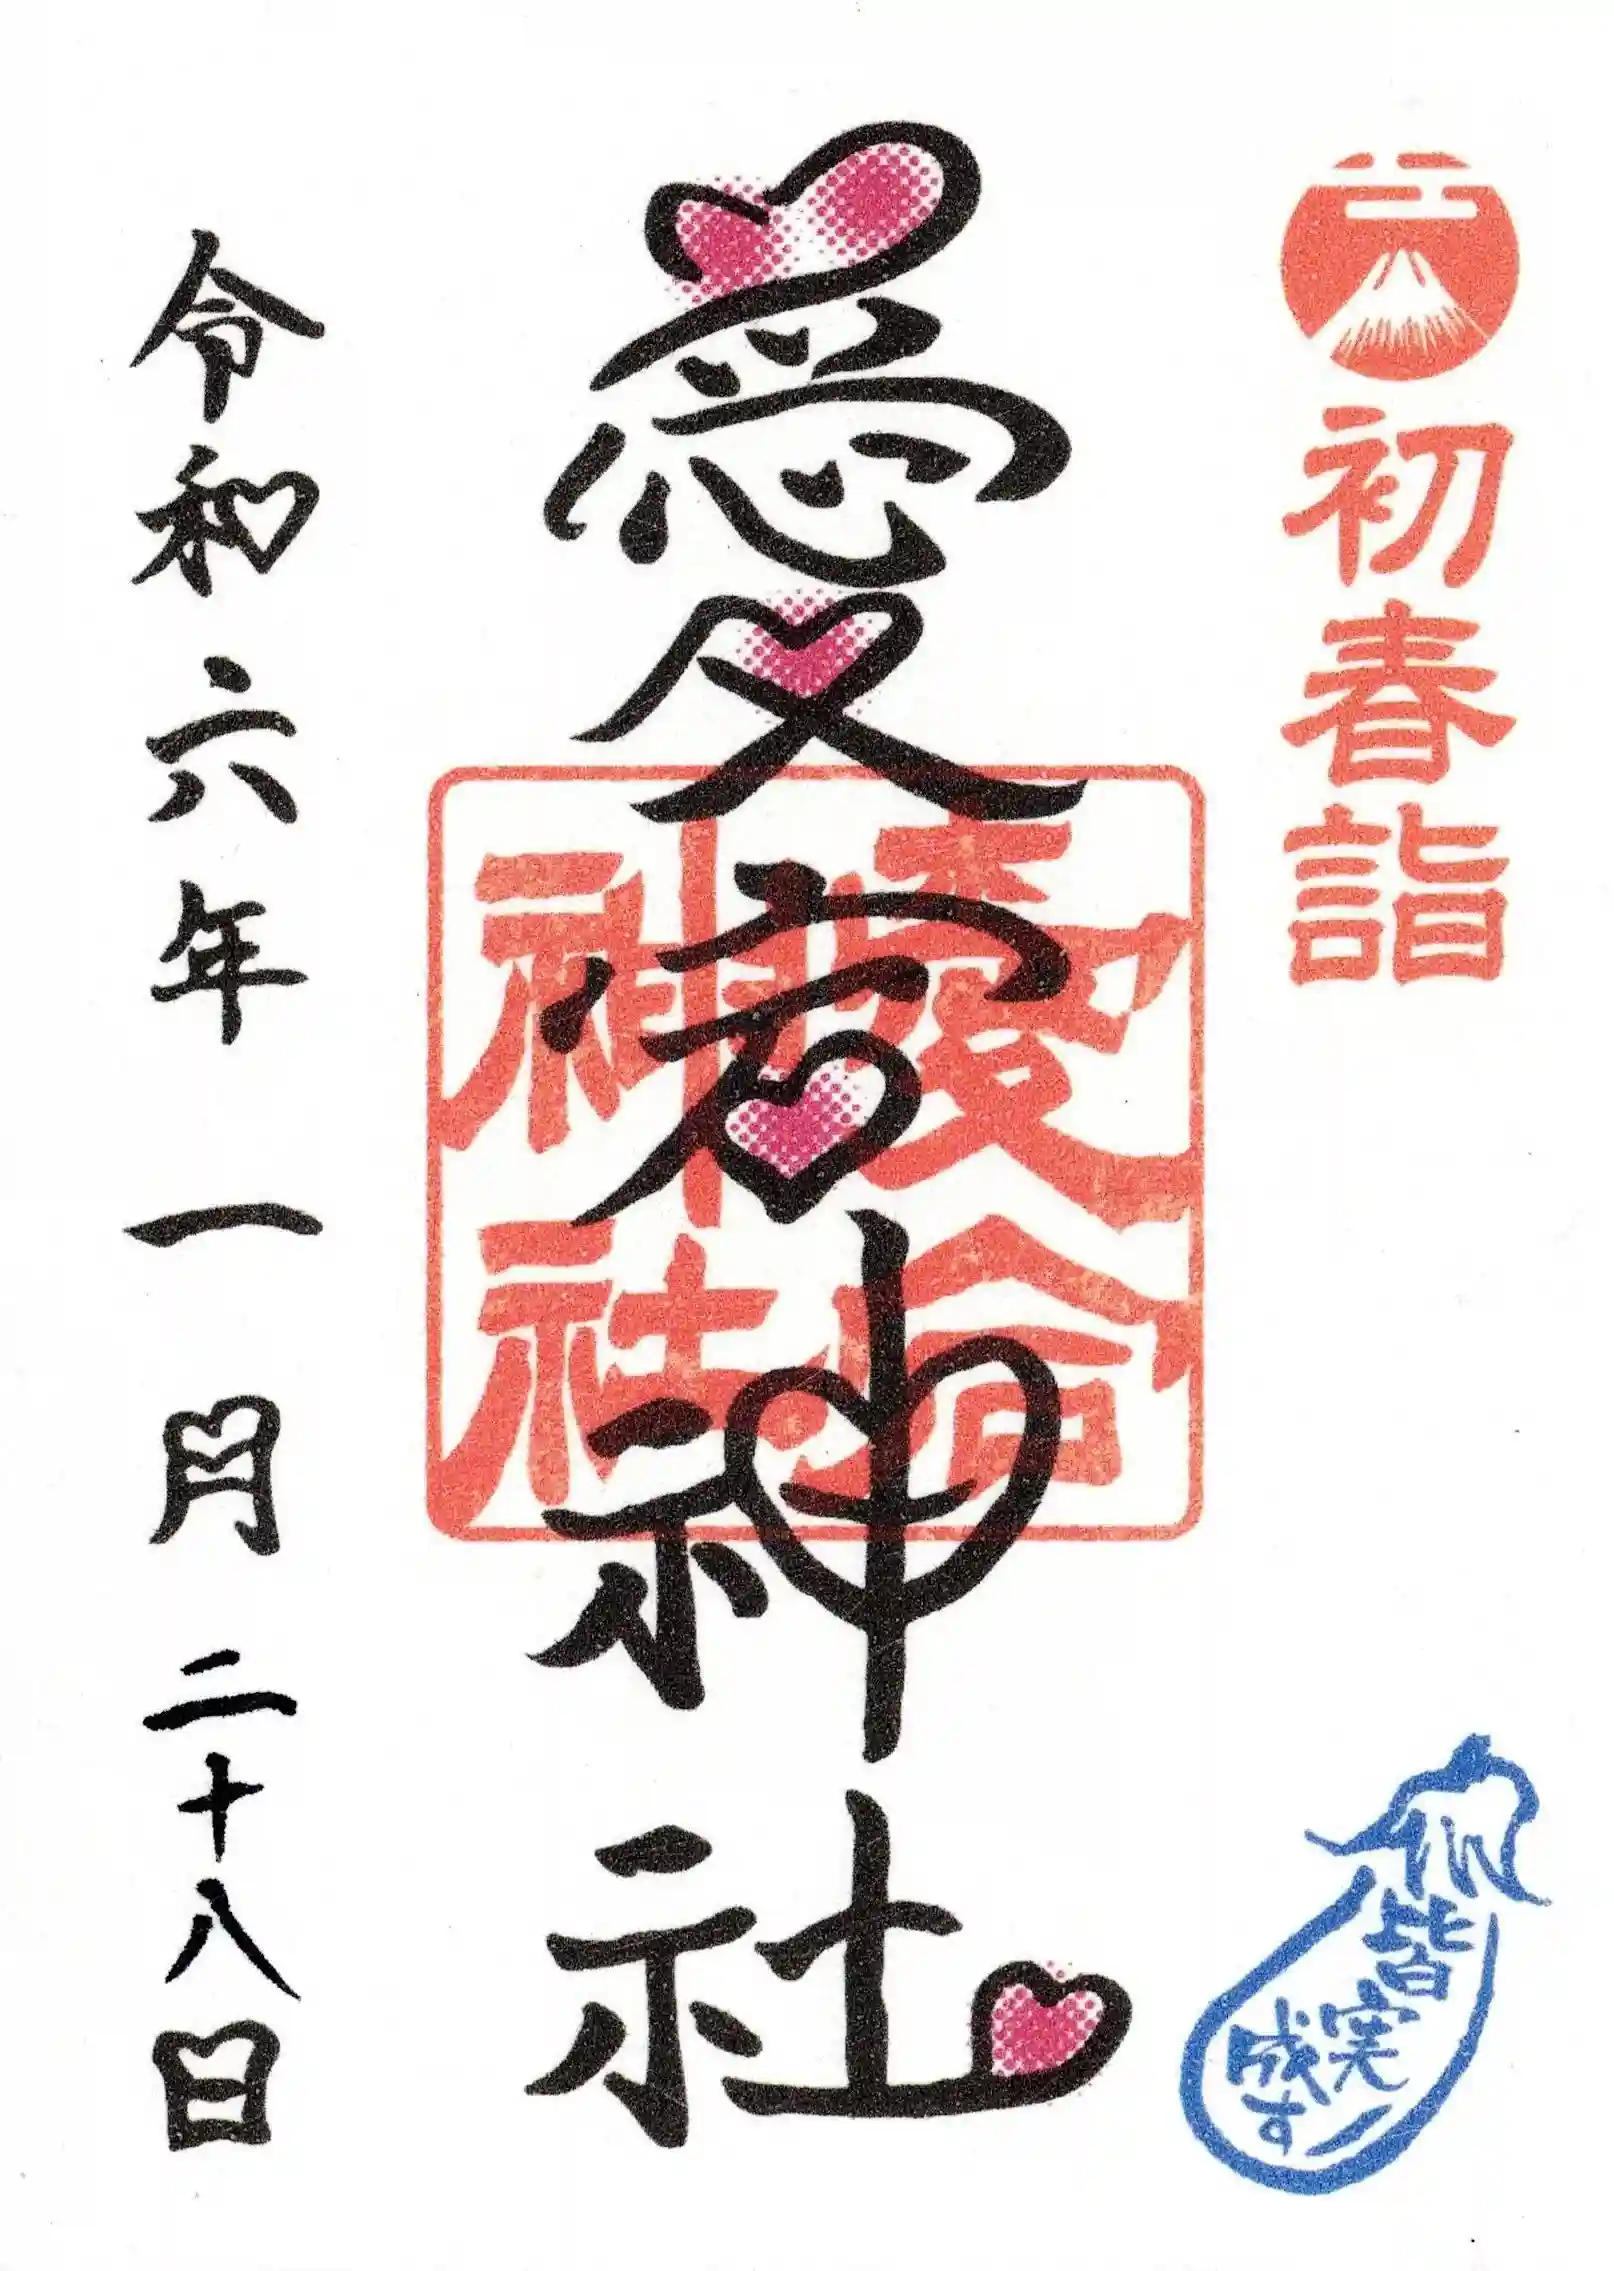 初春詣
皆実
成す
愛宕神社
愛宕
神社
令和六年一月二十八日